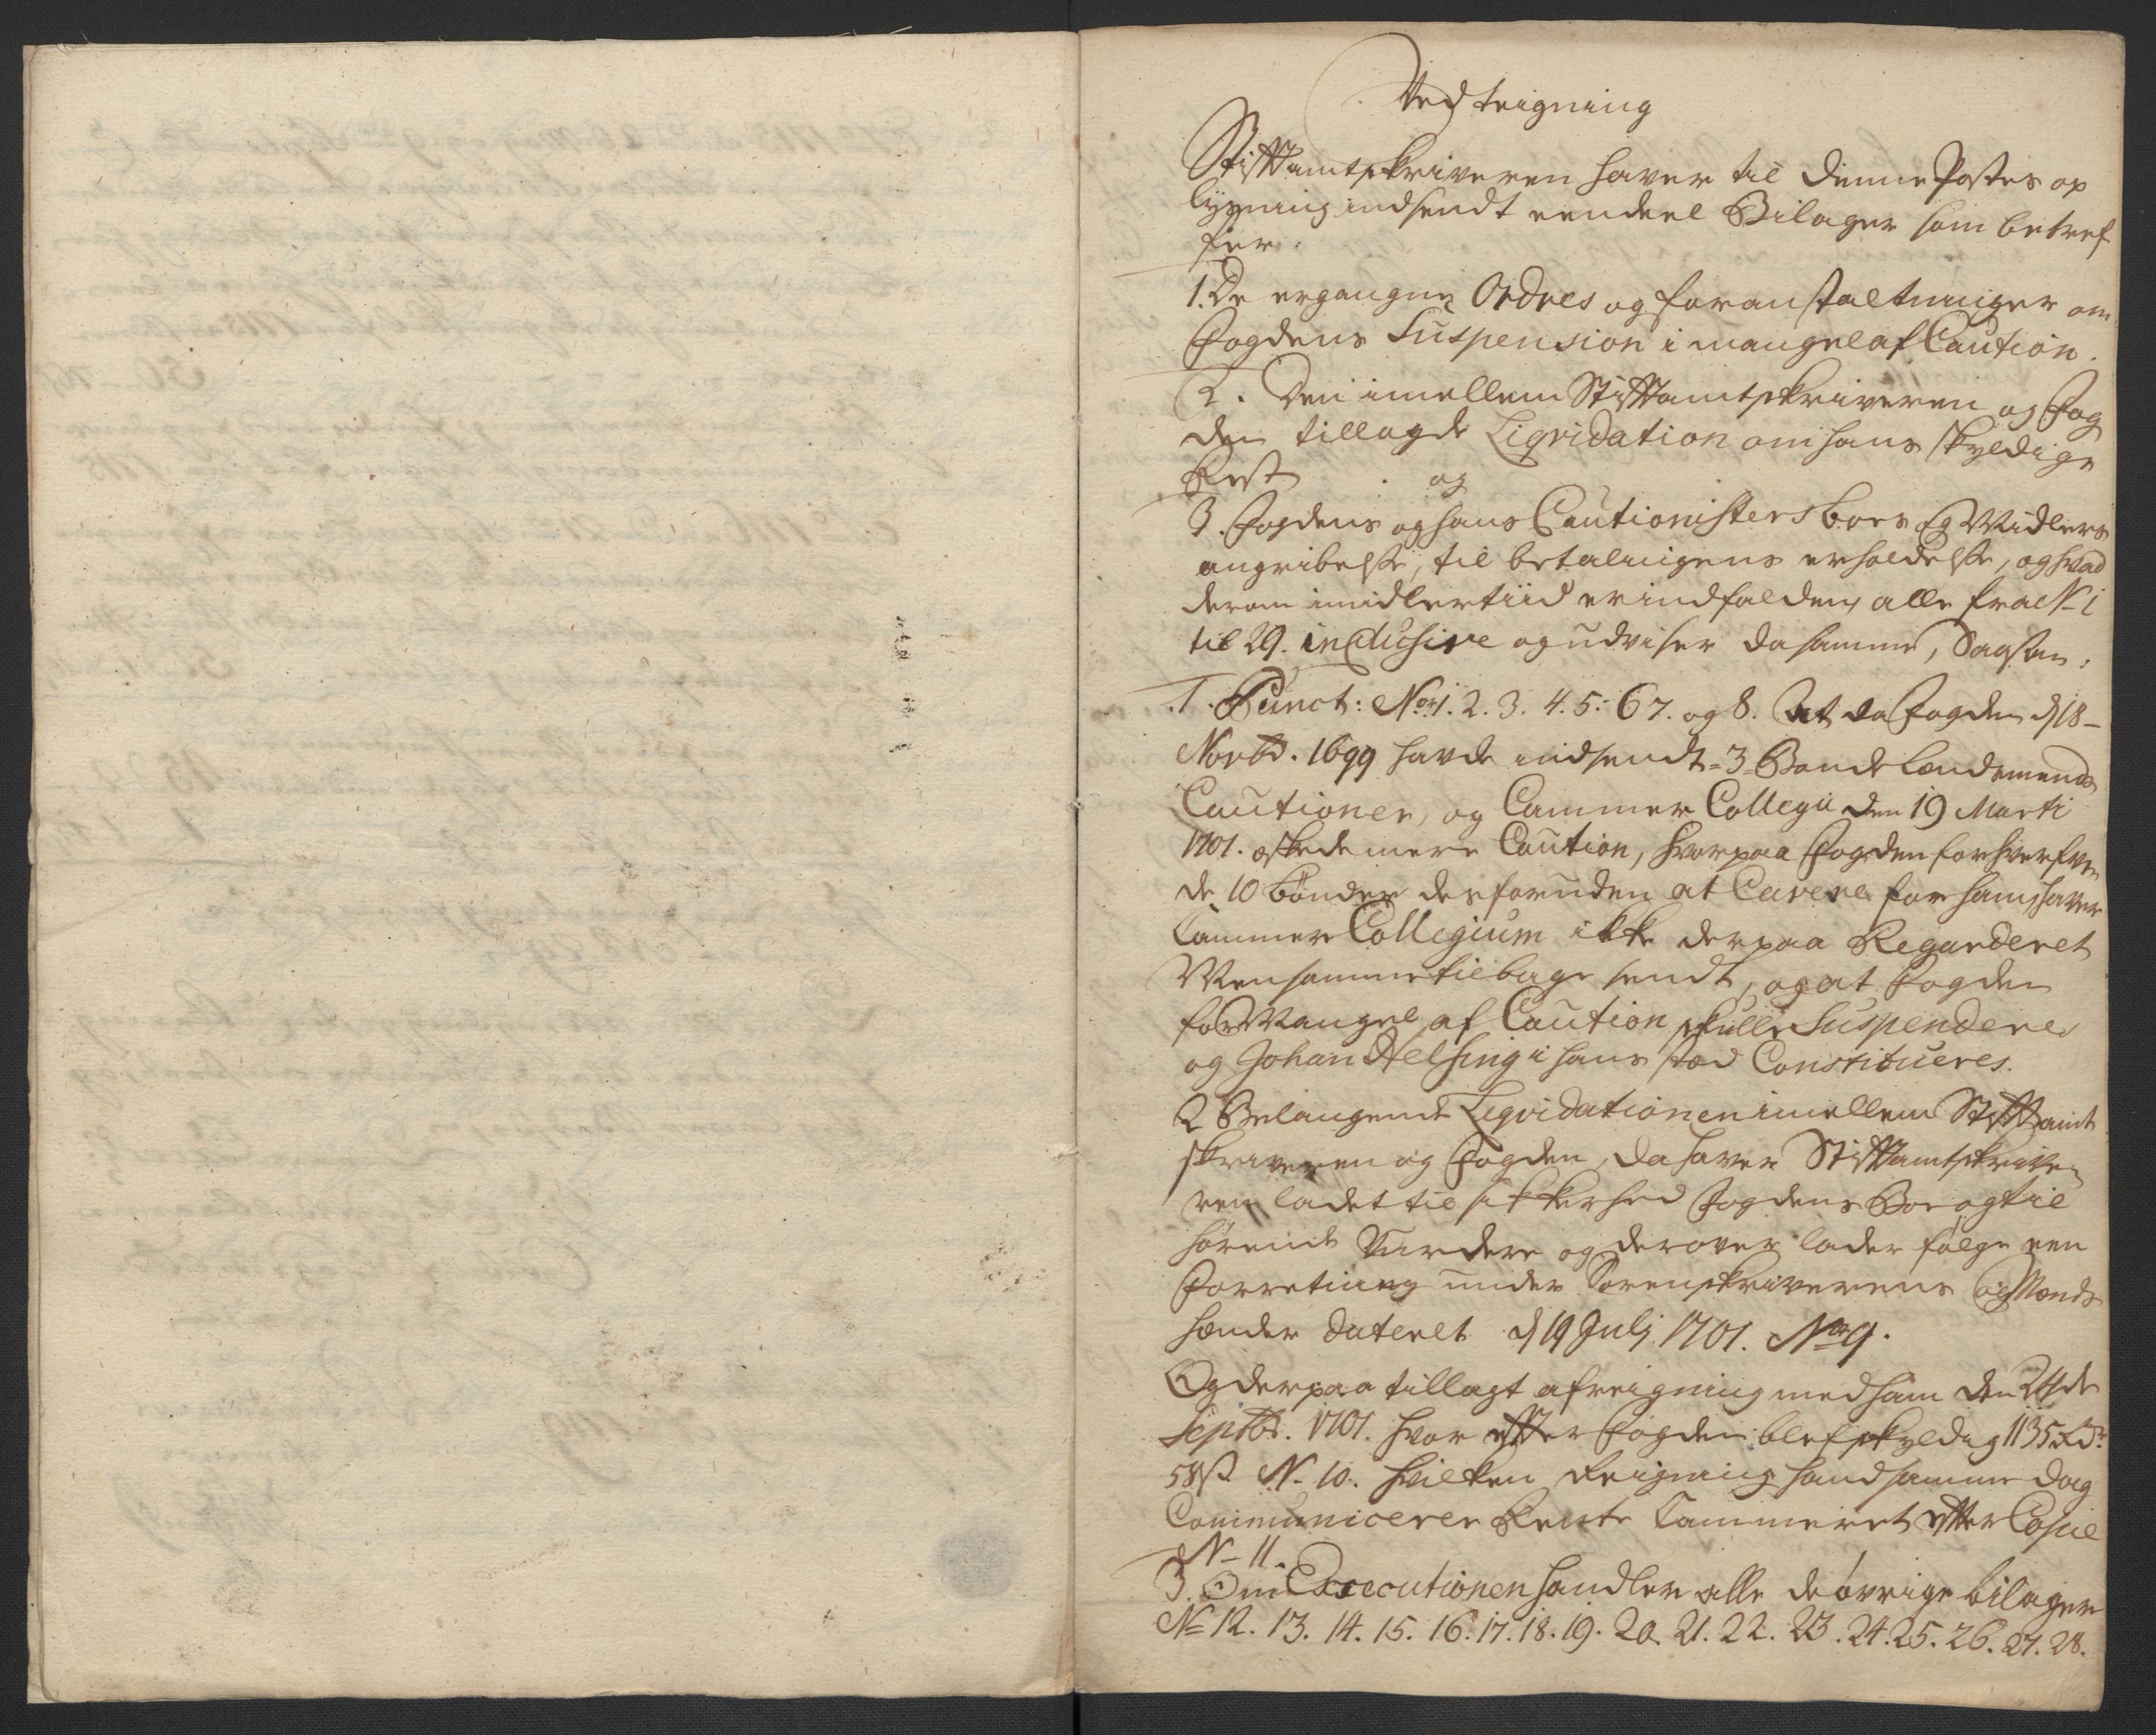 Ved teigning
Stiftamtskriveren haver til denne Postes op
lysning indsendt eendeel Bilager som betref
fer:
1. De ergangne Ordres og foranstaltninger om
Fogdens Suspension i mangel af Caution.
2. Den imellem Stiftamtskriveren og Fog
den tillagde Liqvidation om hans skyldige
Rest og
3. Fogdens og hans Cautionisters boes og Midlers
angribelsse, til betalingens erholdelsse, og hvad
derom imidlertiid er indfalden, alle fra No 1
til 29. inclusive og udviser da samme, Sagsten,
1. Punct: No 1. 2. 3. 4. 5. 6 7. og 8. At da Fogden d 18
Novbd. 1699 havde indsendt 3 Bonde Lendsmends
Cautioner, og Cammer Collegii den 19 Marti
1701. eskede mere Caution, hvorpaa Fogden forhverfve
de 10 bönder desforuden at Cavere for ham, haver
Cammer Collegium ikke derpaa Regarderet
Men samme tilbage sendt, og at Fogden
for Mangel af Caution skulle Suspenderes
og Johan Helsing i hans sted Constitueres.
2 Belangende Liqvidationen imellem Stiftamt
skriveren og Fogden, da haver Stiftamtskrive
ren ladet til sikkerhed Fogdens Boe og til
hörende Vurdere og derover lader fölge een
Forretning under Sorenskriverens og Mends
hender dateret d 19 Julj 1701. No 9.
Og derpaa tillagt afreigning med ham den 24de
Septbd. 1701. hvor effter Fogden blef skyldig 1135 Rdr
58 ß No 10. hvilken Reigning hand samme dag
Communicerer Rente Cammeret effter Copie
No 11.
3. Om Executionen handler alle de övrige bilager
No 12. 13. 14. 15. 16. 17. 18. 19. 20. 21. 22. 23. 24. 25. 26. 27. 28.